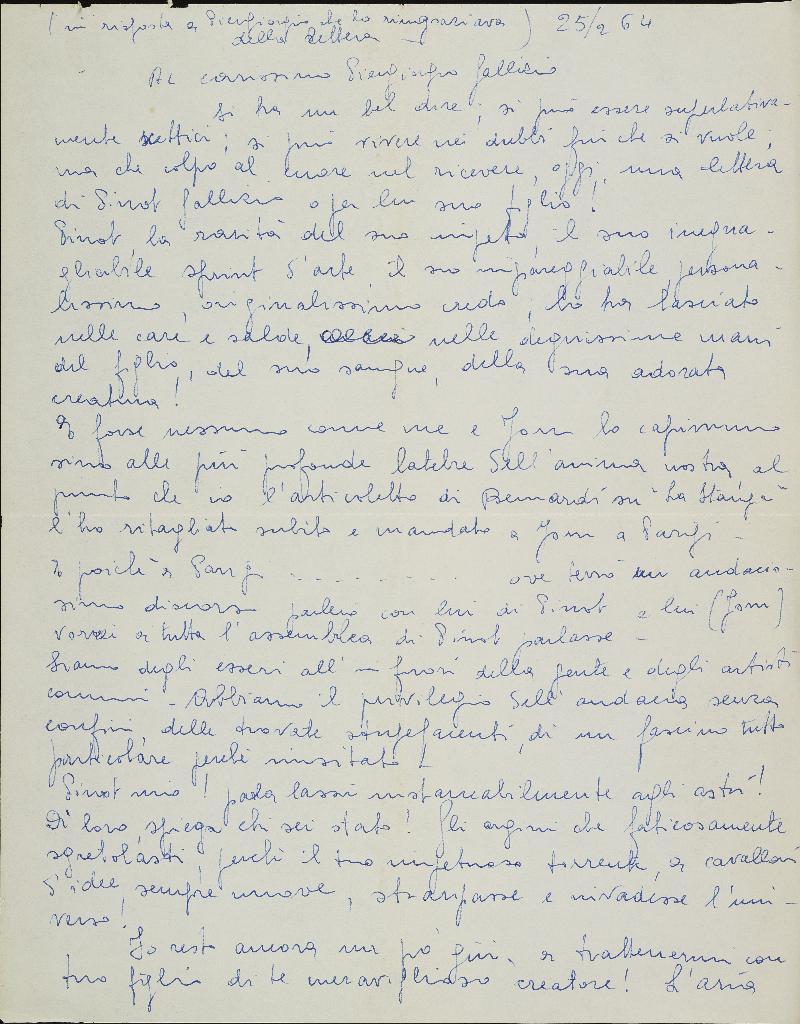 (in risposta a Piergiorgio che lo ringraziava
della lettera —) 25/2 64
Al carissimo Piergiorgio Gallizio
Si ha un bel dire; si può essere superlativa-
mente scettici; si può vivere nei dubbi fin che si vuole;
ma che colpo al cuore nel ricevere, oggi, una lettera
di Pinot Gallizio o per lui suo figlio!
Pinot, la rarità del suo impeto, il suo inegua-
gliabile sprint d'arte, il suo impareggiabile, persona-
lissimo, originalissimo credo, lo ha lasciato
nelle care e salde, nelle degnissime mani
del figlio, del suo sangue, della sua adorata
creatura!
E forse nessuno come me e Jorn lo capimmo
sino alle più profonde latebre dell'anima nostra al
punto che io l'articoletto di Bernardi su "La Stampa"
l'ho ritagliato subito e mandato a Jorn a Parigi -
E poichè a Parigi . . . . . . . . . . . ove terrò un audacis-
simo discorso parlerò con lui di Pinot e lui (Jorn)
vorrei a tutta l'assemblea di Pinot parlasse -
Siamo degli esseri all'infuori della gente e degli artisti
comuni - Abbiamo il privilegio dell'audacia senza
confini, delle trovate stupefacenti, di un fascino tutto
particolare perchè inusitato!
Pinot mio! parla lassù instancabilmente agli astri!
Dì loro, spiega chi sei stato! Gli argini che faticosamente
sgretolasti, perchè il tuo impetuoso torrente, a cavalloni
d'idee, sempre nuove, straripasse e invadesse l'uni-
verso!
Io resto ancora un pò qui, a trattenermi con
tuo figlio di te meraviglioso creatore! L'aria